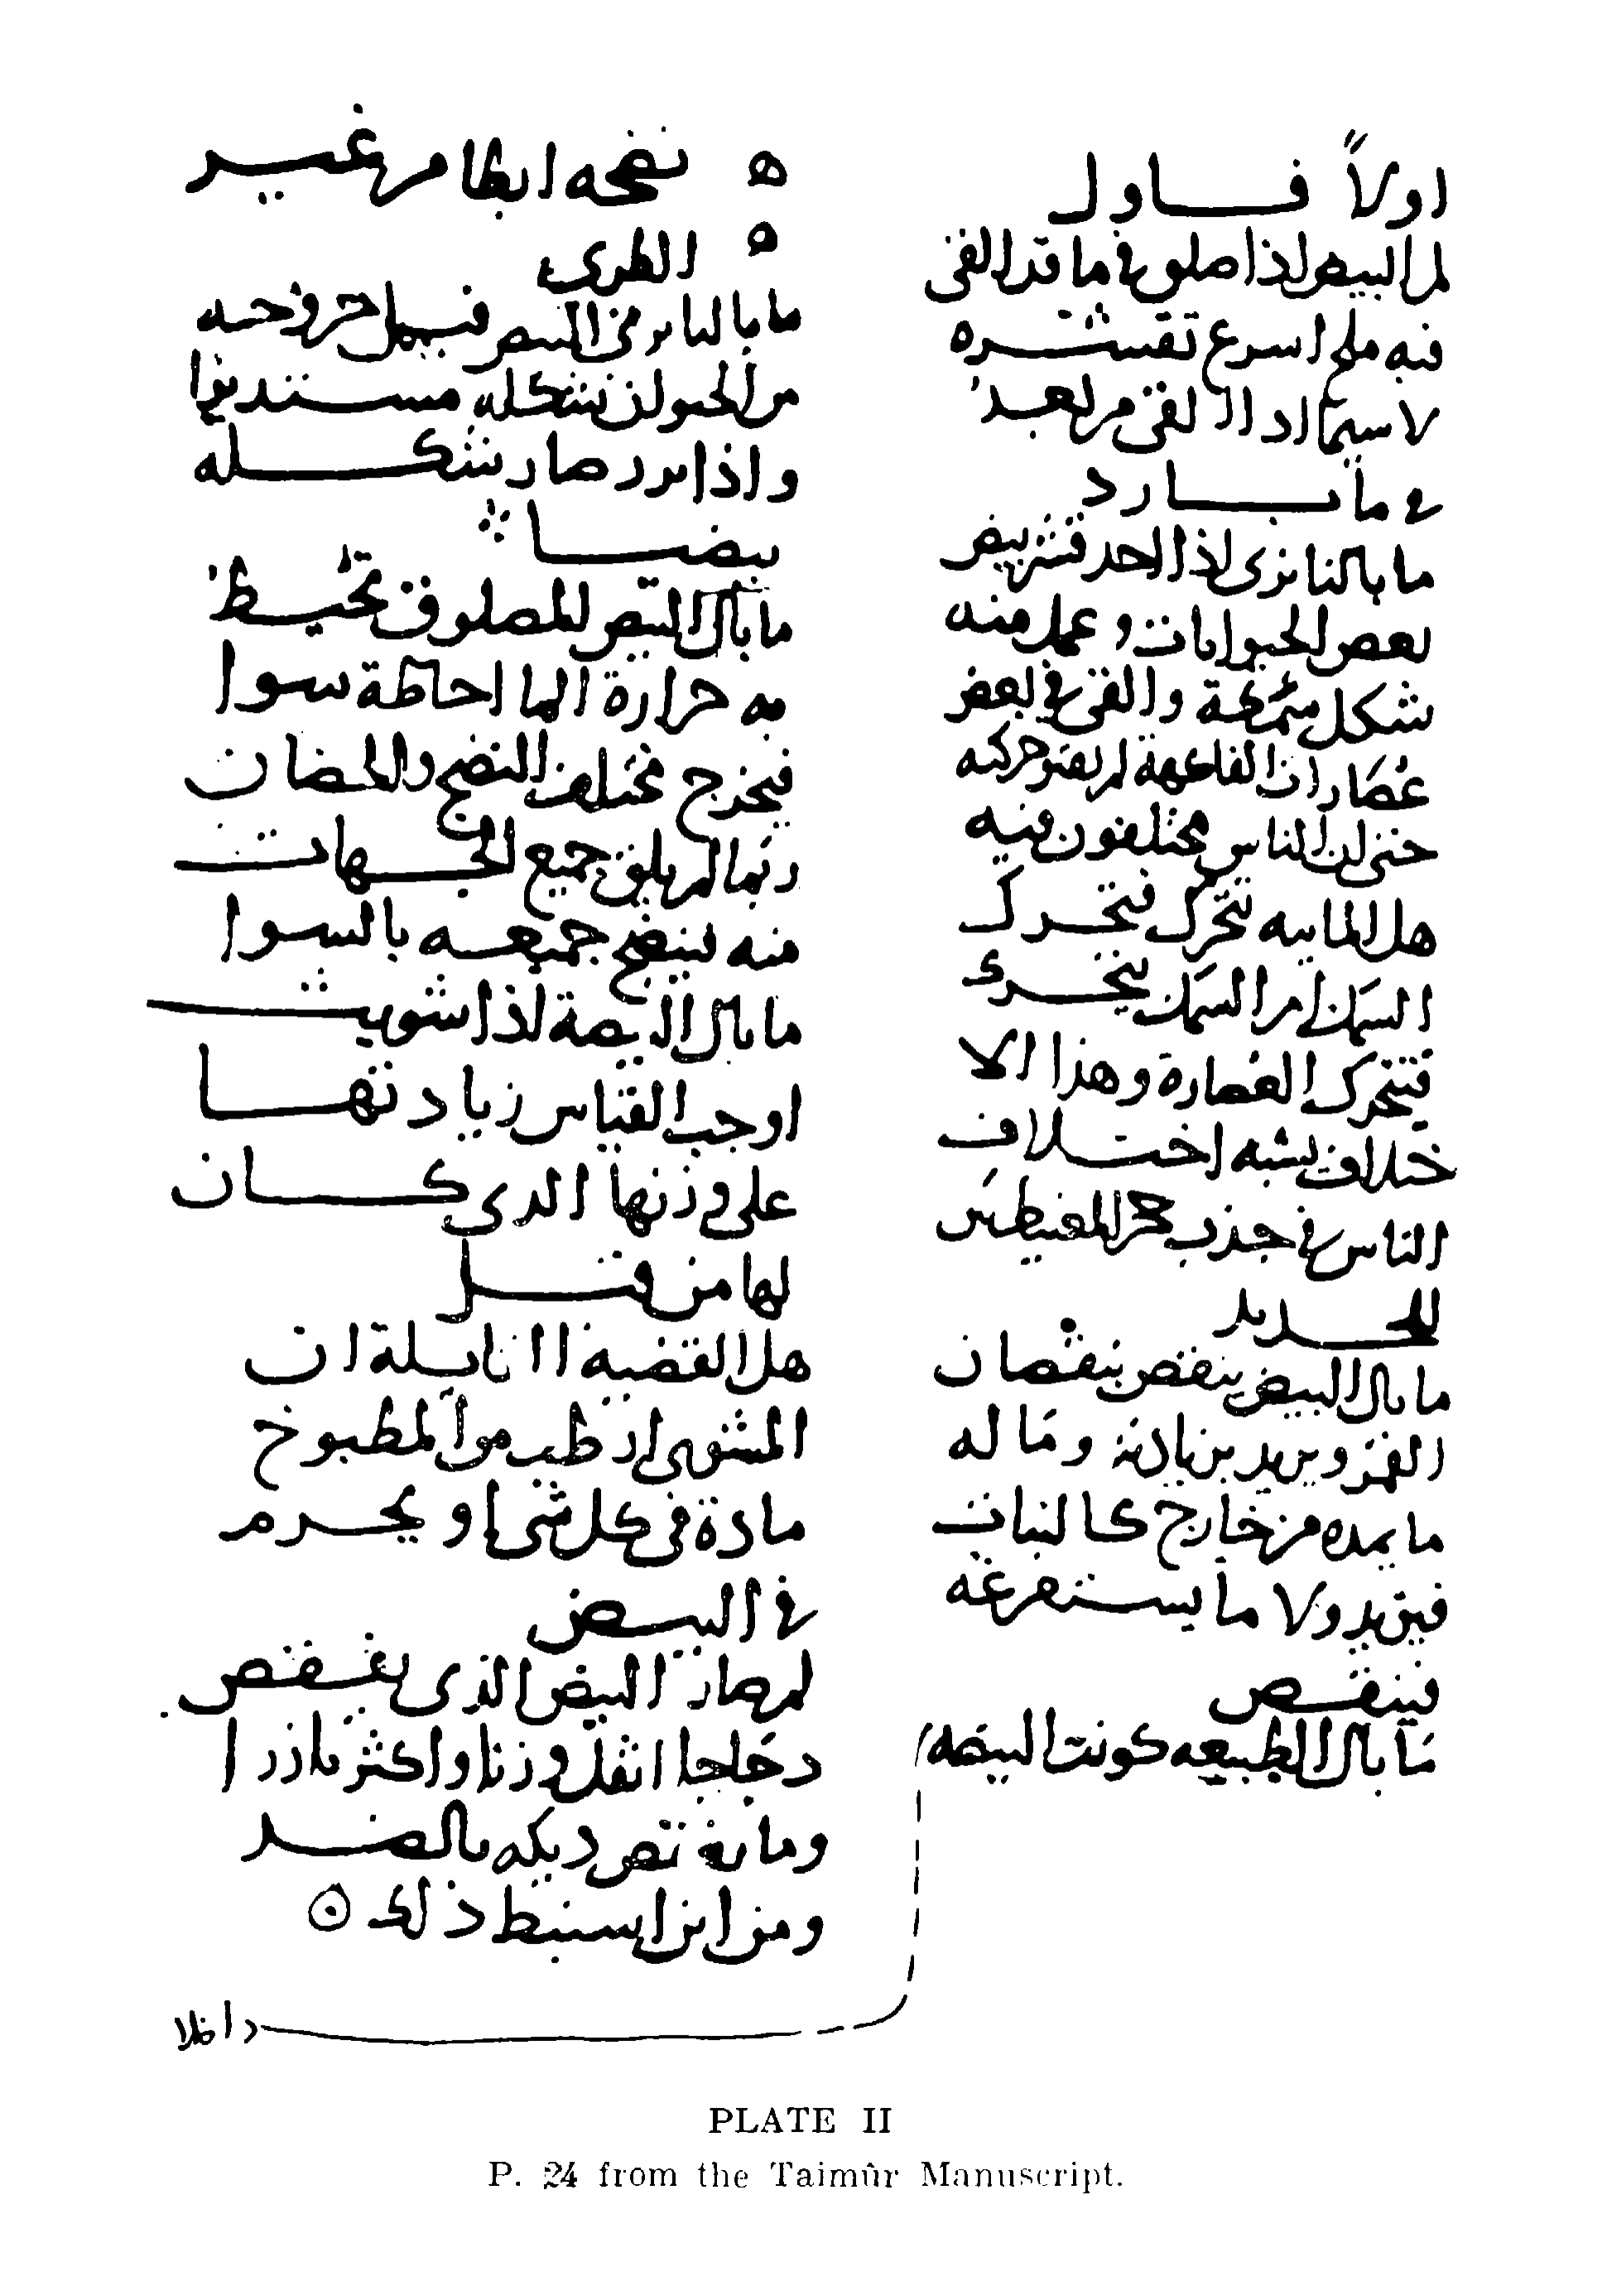 اولاً فاول
لم البيض اذا صلق في ما قد القي
فيه ملح اسرع تقشره
لا سيما اذا القي من بعد
في ما بارد
ما بالنا نرى اذا احد قشر بيض
بعض الحيوانات وعمل منه
شكل سمكة والقي في بعض
عصارات الفاكهة لم يفتر حركته
حتى ان الناس مختلفون فيه
هل المائيه تتحرك فتحرك
السمك ام السمك يتحرك
فتتحرك العصارة وهذا الا
ختلاف يشبه اختلاف
الناس في جذب حجر المغنيطس
للحديد
ما بال البيض ينقص بنقصان
القمر ويزيد بزيادته وما له
ما يمده من خارج كالنبات
فيزيد ولا ما يستفرغه
فينقص
ما بال الطبيعه كونت البيضه
نضجه ابطا من غير
الطري
ما بالنا نرى البيض فيما خروجه
من الحيوان شكله مستديرا
واذا برد صار شكله
بيضا
ما بال البيض المصلوق تحيط
به حرارة الما احاطة سوا
فيخرج مختلف النضج والحضان
ربما لم يلق جميع الجهات
منه فينضج جميعه بالسوا
ما بال البيضة اذا شويت
اوجب القياس زيادتها
على وزنها الذي كان
لها من قبل
هل القضيه القابلة ان
المشوي ارطب من المطبوخ
مادة في كل شي او يحرم
في البيض
لم صار البيض الذي يفقص
دجاجا اثقل وزنا واكثر بازرا
وما به تقص ديكه بالضد
ومن اين استنبط ذلك
داخلا
PLATE II
P. 24 from the Taimûr Manuscript.